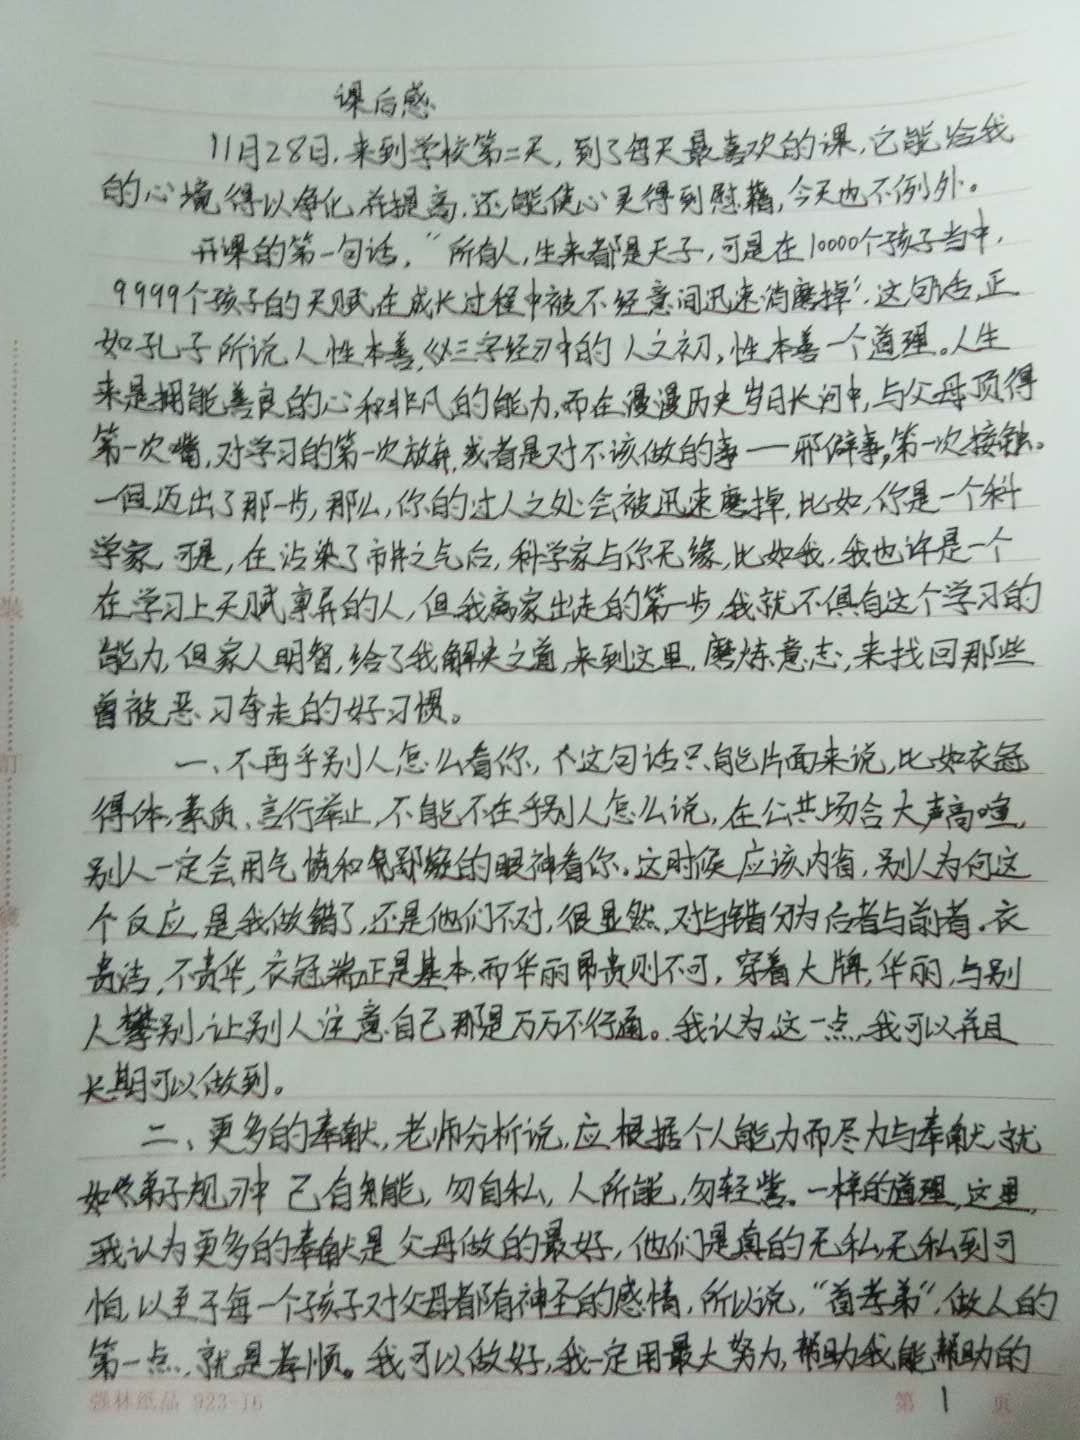 课后感
11月28日,来到学校第二天,到了每天最喜欢的课,它能给我
的心境得以净化和提高,还能使心灵得到慰藉,今天也不例外。
开课的第一句话,“所有人,生来都是天子,可是在10000个孩子当中,
9999个孩子的天赋在成长过程中被不经意间迅速消磨掉”,这句话,正
如孔子所说人性本善,《三字经》中的人之初,性本善一个道理。人生
来是拥能善良的心和非凡的能力,而在漫漫历史岁日长河中,与父母顶得
第一次嘴,对学习的第一次放弃,或者是对不该做的事——邪僻事,第一次接触。
一但迈出了那一步,那么,你的过人之处会被迅速磨掉,比如,你是一个科
学家,可是,在沾染了市井之气后,科学家与你无缘,比如我,我也许是一个
在学习上天赋事异的人,但我离家出走的第一步,我就不俱自这个学习的
能力,但家人明智,给了我解决之道,来到这里,磨炼意志,来找回那些
曾被恶习夺走的好习惯。
一、不再乎别人怎么看你,个这句话只能片面来说,比如衣冠
得体,素质、言行举止,不能不在乎别人怎么说,在公共场合大声高喧,
别人一定会用气愤和鄙疑的眼神看你。这时候应该内省,别人为何这
个反应,是我做错了,还是他们不对,很显然,对与错分为后者与前者。衣
贵洁,不贵华,衣冠端正是基本,而华丽昂贵则不可,穿着大牌,华丽,与别
人攀别,让别人注意自己那是万万不行通。我认为这一点,我可以并且
长期可以做到。
二、更多的奉献,老师分析说,应根据个人能力而尽力与奉献,就
如《弟子规》中 己自有能,勿自私,人所能,勿轻訾。一样的道理,这里,
我认为更多的奉献是父母做的最好,他们是真的无私,无私到可
怕,以至于每一个孩子对父母都有神圣的感情,所以说,“首孝弟”,做人的
第一点,就是孝顺。我可以做好,我一定用最大努力,帮助我能帮助的
强林纸品 923-16
第 1 页
装
订
线